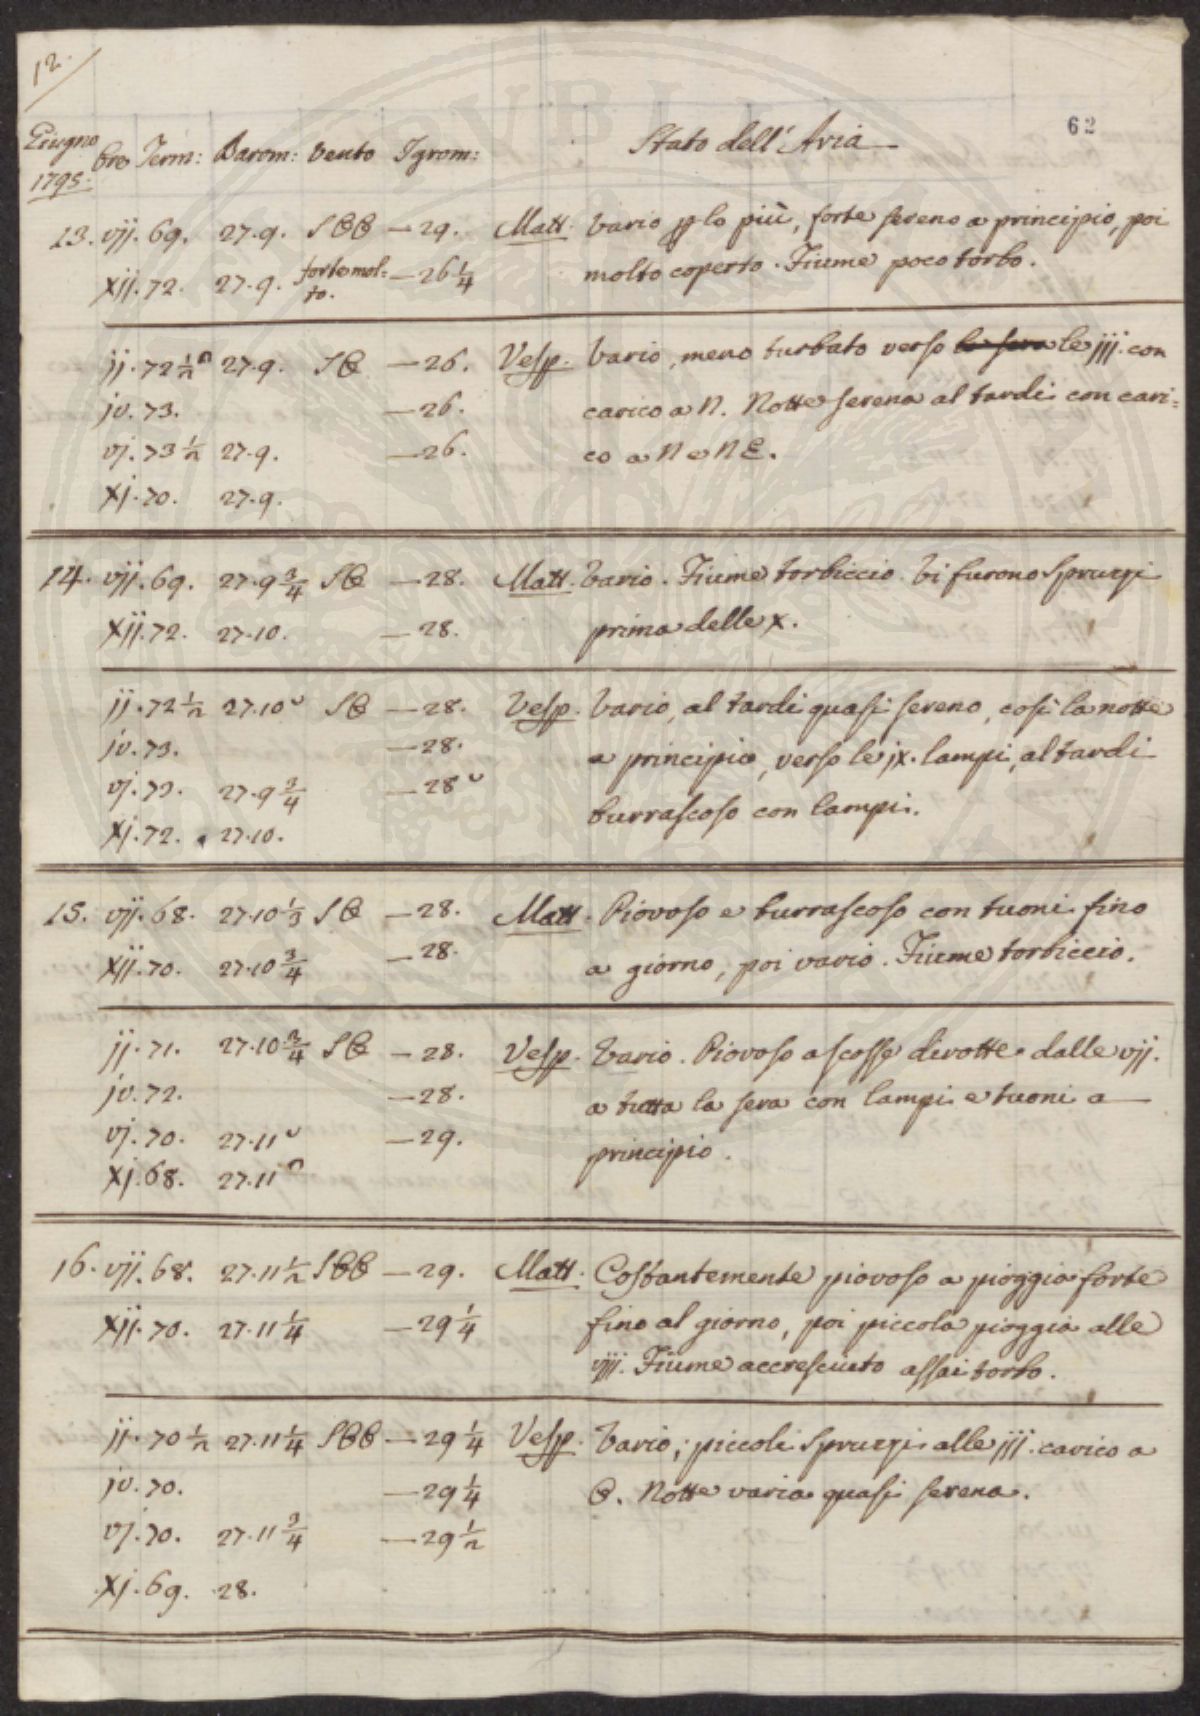 12.
62
Giugno 1795. Ore Term: Barom: Vento Igrom: Stato dell'Aria
13. vij. 69. 27.9. SOO —29. Matt. Vario p lo più, forte sereno a principio, poi
xij. 72. 27.9. forte mol= to. —26 1/4 molto coperto. Fiume poco torbo.
ij. 72 1/2 27.9. SO —26. Vesp. Vario, meno turbato verso la sera le iij. con
iv. 73. —26. carico a N. Notte serena al tardi con cari=
vj. 73 1/2 27.9. —26. co a N e NE.
xj. 70. 27.9.
14. vij. 69. 27.9 3/4 SO —28. Matt. Vario. Fiume torbiccio. Vi furono spruzzi
xij. 72. 27.10. —28. prima delle x.
ij. 72 1/2 27.10 SO —28. Vesp. Vario, al tardi quasi sereno, così la notte
iv. 73. —28. a principio, verso le ix. lampi, al tardi
vj. 73. 27.9 3/4 —28 burrascoso con lampi.
xj. 72. 27.10.
15. vij. 68. 27.10 1/3 SO —28. Matt. Piovoso e burrascoso con tuoni fino
xij. 70. 27.10 3/4 —28. a giorno, poi vario. Fiume torbiccio.
ij. 71. 27.10 3/4 SO —28. Vesp. Vario. Piovoso a scosse dirotte dalle vij.
iv. 72. —28. a tutta la sera con lampi e tuoni a
vj. 70. 27.11 —29. principio.
xj. 68. 27.11
16. vij. 68. 27.11 1/2 SOO —29. Matt. Costantemente piovoso a pioggia forte
xij. 70. 27.11 1/4 —29 1/4 fino al giorno, poi piccola pioggia alle
viij. Fiume accresciuto assai torbo.
ij. 70 1/2 27.11 1/4 SOO —29 1/4 Vesp. Vario; piccoli spruzzi alle iij. carico a
iv. 70. —29 1/4 O. Notte varia quasi serena.
vj. 70. 27.11 3/4 —29 1/2
xj. 69. 28.